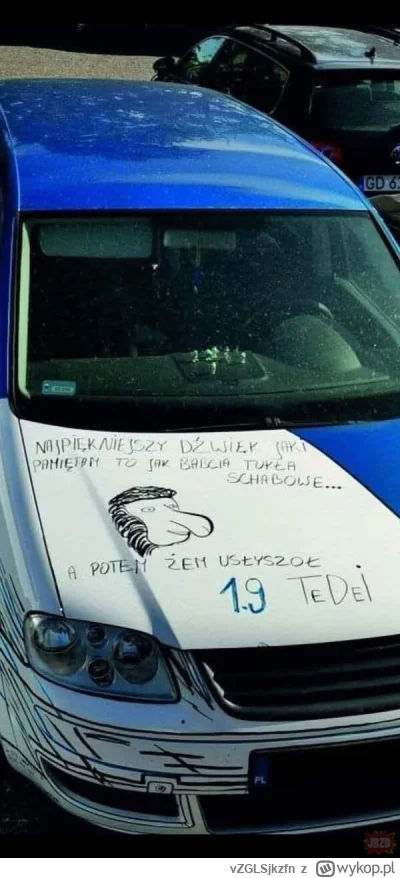 GD 6
NAJPIĘKNIEJSZY DŹWIĘK JAKI
PAMIĘTAM TO JAK BABCIA TUKŁA
SCHABOWE...
A POTEM ŻEM USŁYSZOŁ
1.9 TeDeI
PL
JBZD
vZGLSjkzfn z wykop.pl